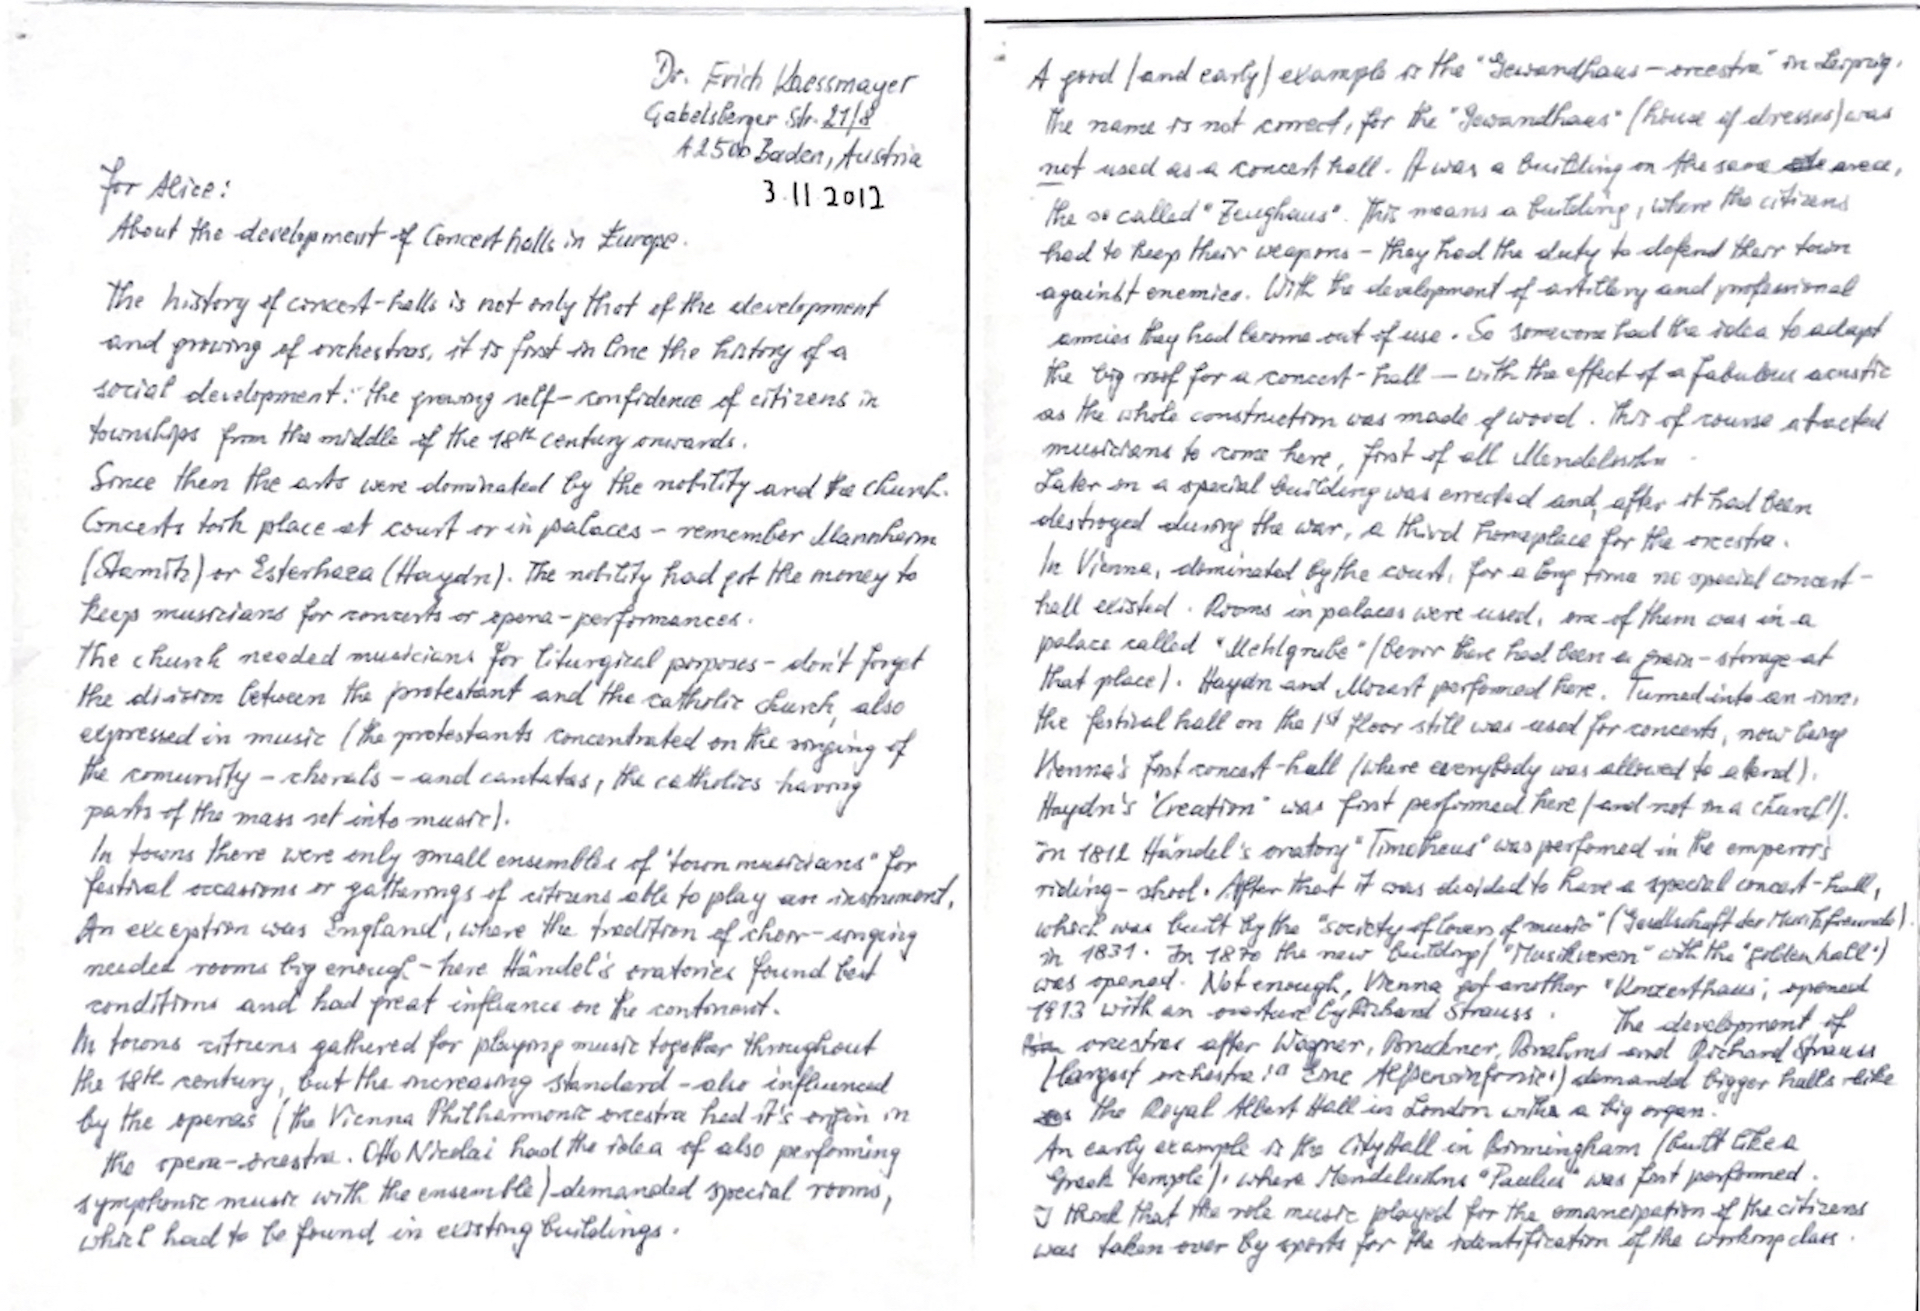 Dr. Erich Kaessmayer
Gabelsberger Str. 21/8
A 2500 Baden, Austria
3.11.2012
For Alice:
About the development of Concert halls in Europe.
The history of concert-halls is not only that of the development
and growing of orchestras, it is first in line the history of a
social development: the growing self-confidence of citizens in
townships from the middle of the 18th century onwards.
Since then the arts were dominated by the nobility and the church.
Concerts took place at court or in palaces - remember Mannheim
(Stamitz) or Esterhaza (Haydn). The nobility had got the money to
keep musicians for concerts or opera-performances.
The church needed musicians for liturgical porposes - don't forget
the division between the protestant and the catholic church, also
expressed in music (the protestants concentrated on the singing of
the comunity - chorals - and cantatas, the catholics having
parts of the mass set into music).
In towns there were only small ensembles of "town musicians" for
festival occasions or gatherings of citizens able to play an instrument.
An exception was England, where the tradition of choir-singing
needed rooms big enough - here Händel's oratories found best
conditions and had great influence on the continent.
In towns citizens gathered for playing music together throughout
the 18th century, but the increasing standard - also influenced
by the operas (the Vienna Philharmonic orcestra had it's origin in
the opera-orcestra. Otto Nicolai had the idea of also performing
symphonic music with the ensemble) demanded special rooms,
which had to be found in existing buildings.
A good (and early) example is the "Gewandhaus - orcestra" in Leipzig.
The name is not correct, for the "Gewandhaus" (house of dresses) was
not used as a concert hall. It was a building on the same area,
the so called "Zeughaus". This means a building, where the citizens
had to keep their weapons - they had the duty to defend their town
against enemies. With the development of artillery and professional
armies they had become out of use. So someone had the idea to adapt
the big roof for a concert-hall - with the effect of a fabulous acustic
as the whole construction was made of wood. This of course atracted
musicians to come here, first of all Mendelssohn.
Later on a special building was errected and, after it had been
destroyed during the war, a third homeplace for the orcestra.
In Vienna, dominated by the court, for a long time no special concert-
hall existed. Rooms in palaces were used, one of them was in a
palace called "Mehlgrube" (bevor there had been a grain-storage at
that place). Haydn and Mozart performed here. Turned into an inn,
the festival hall on the 1st floor still was used for concerts, now being
Vienna's first concert-hall (where everybody was allowed to atend).
Haydn's "Creation" was first performed here (and not in a church!).
In 1812 Händel's oratory "Timotheus" was perfomed in the emperor's
riding-school. After that it was decided to have a special concert-hall,
which was built by the "society of lovers of music" (Gesellschaft der Musikfreunde)
in 1831. In 1870 the new building ("Musikverein" with the "golden hall")
was opened. Not enough, Vienna got another "Konzerthaus", opened
1913 with an overture by Richard Strauss. The development of
orcestras after Wagner, Bruckner, Brahms and Richard Strauss
(largest orchestra: "Eine Alpensinfonie") demanded bigger halls like
the Royal Albert Hall in London with a big organ.
An early example is the City Hall in Birmingham (built like a
Greek temple), where Mendelssohns "Paulus" was first performed.
I think that the role music played for the emancipation of the citizens
was taken over by sports for the identification of the working class.